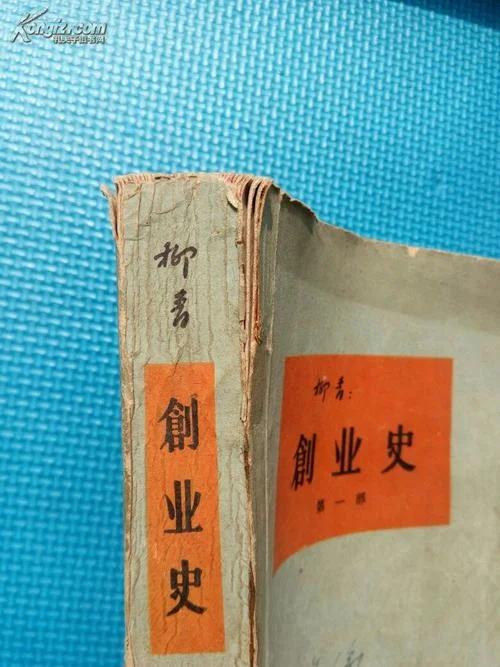 Kongfz.com
孔夫子旧书网
柳青
創业史
柳青:
創业史
第一部